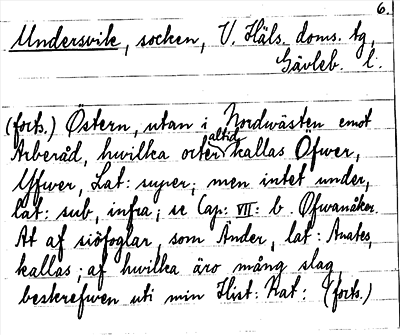 6.
Undersvik, socken, V. Häls. doms. tg,
Gävleb. l.
(forts.) Östern, utan i Nordwästen emot
altid
Arberåd, hwilka orter kallas Öfwer,
Yfwer, Lat: super; men intet under,
lat: sub, infra; se Cap: VII: b. Ofwanåker.
At af siöfoglar, som Änder, lat: Anates,
kallas; af hwilka äro mång slag
beskrefwen uti min Hist: Nat: (forts.)